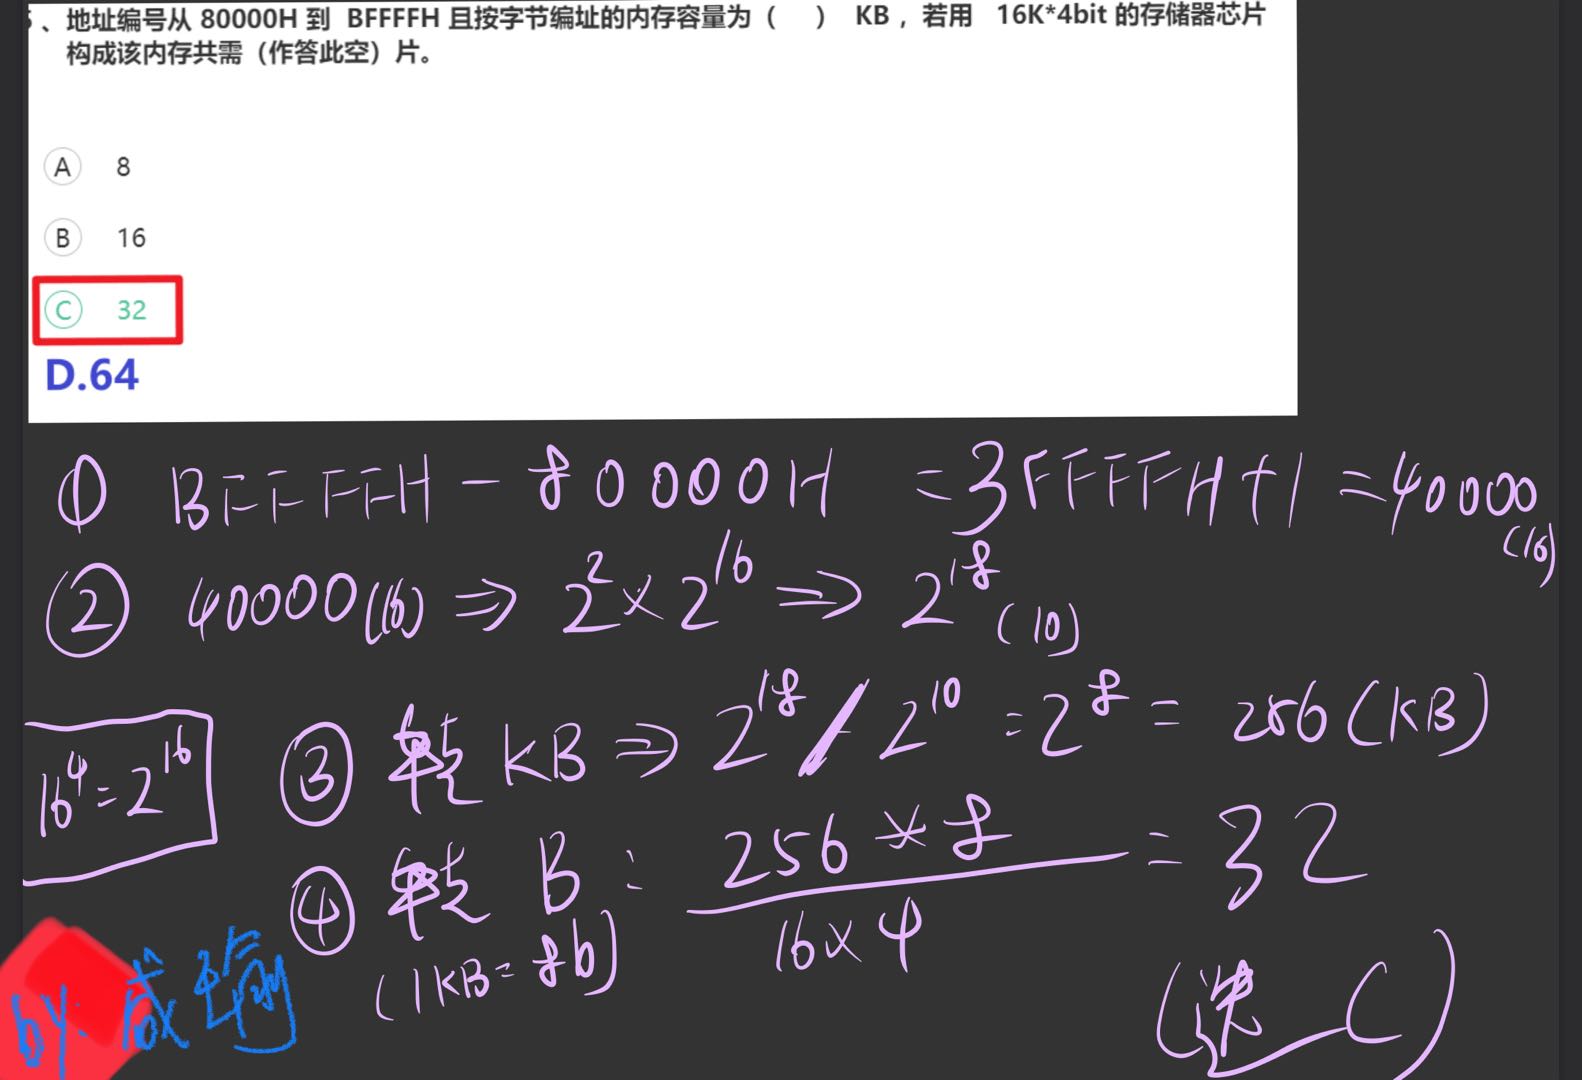 、地址编号从 80000H 到 BFFFFH 且按字节编址的内存容量为（ ） KB ，若用 16K*4bit 的存储器芯片
构成该内存共需（作答此空）片。
A 8
B 16
C 32
D.64
① BFFFFH - 80000H = 3FFFFH+1 = 40000(16)
② 40000(16) ⇒ 2² × 2¹⁶ ⇒ 2¹⁸(10)
16⁴=2¹⁶
③ 转 KB ⇒ 2¹⁸ / 2¹⁰ = 2⁸ = 256 (KB)
④ 转 B : 256 * 8 / 16×4 = 32
(1KB=8b)
(选 C)
by: